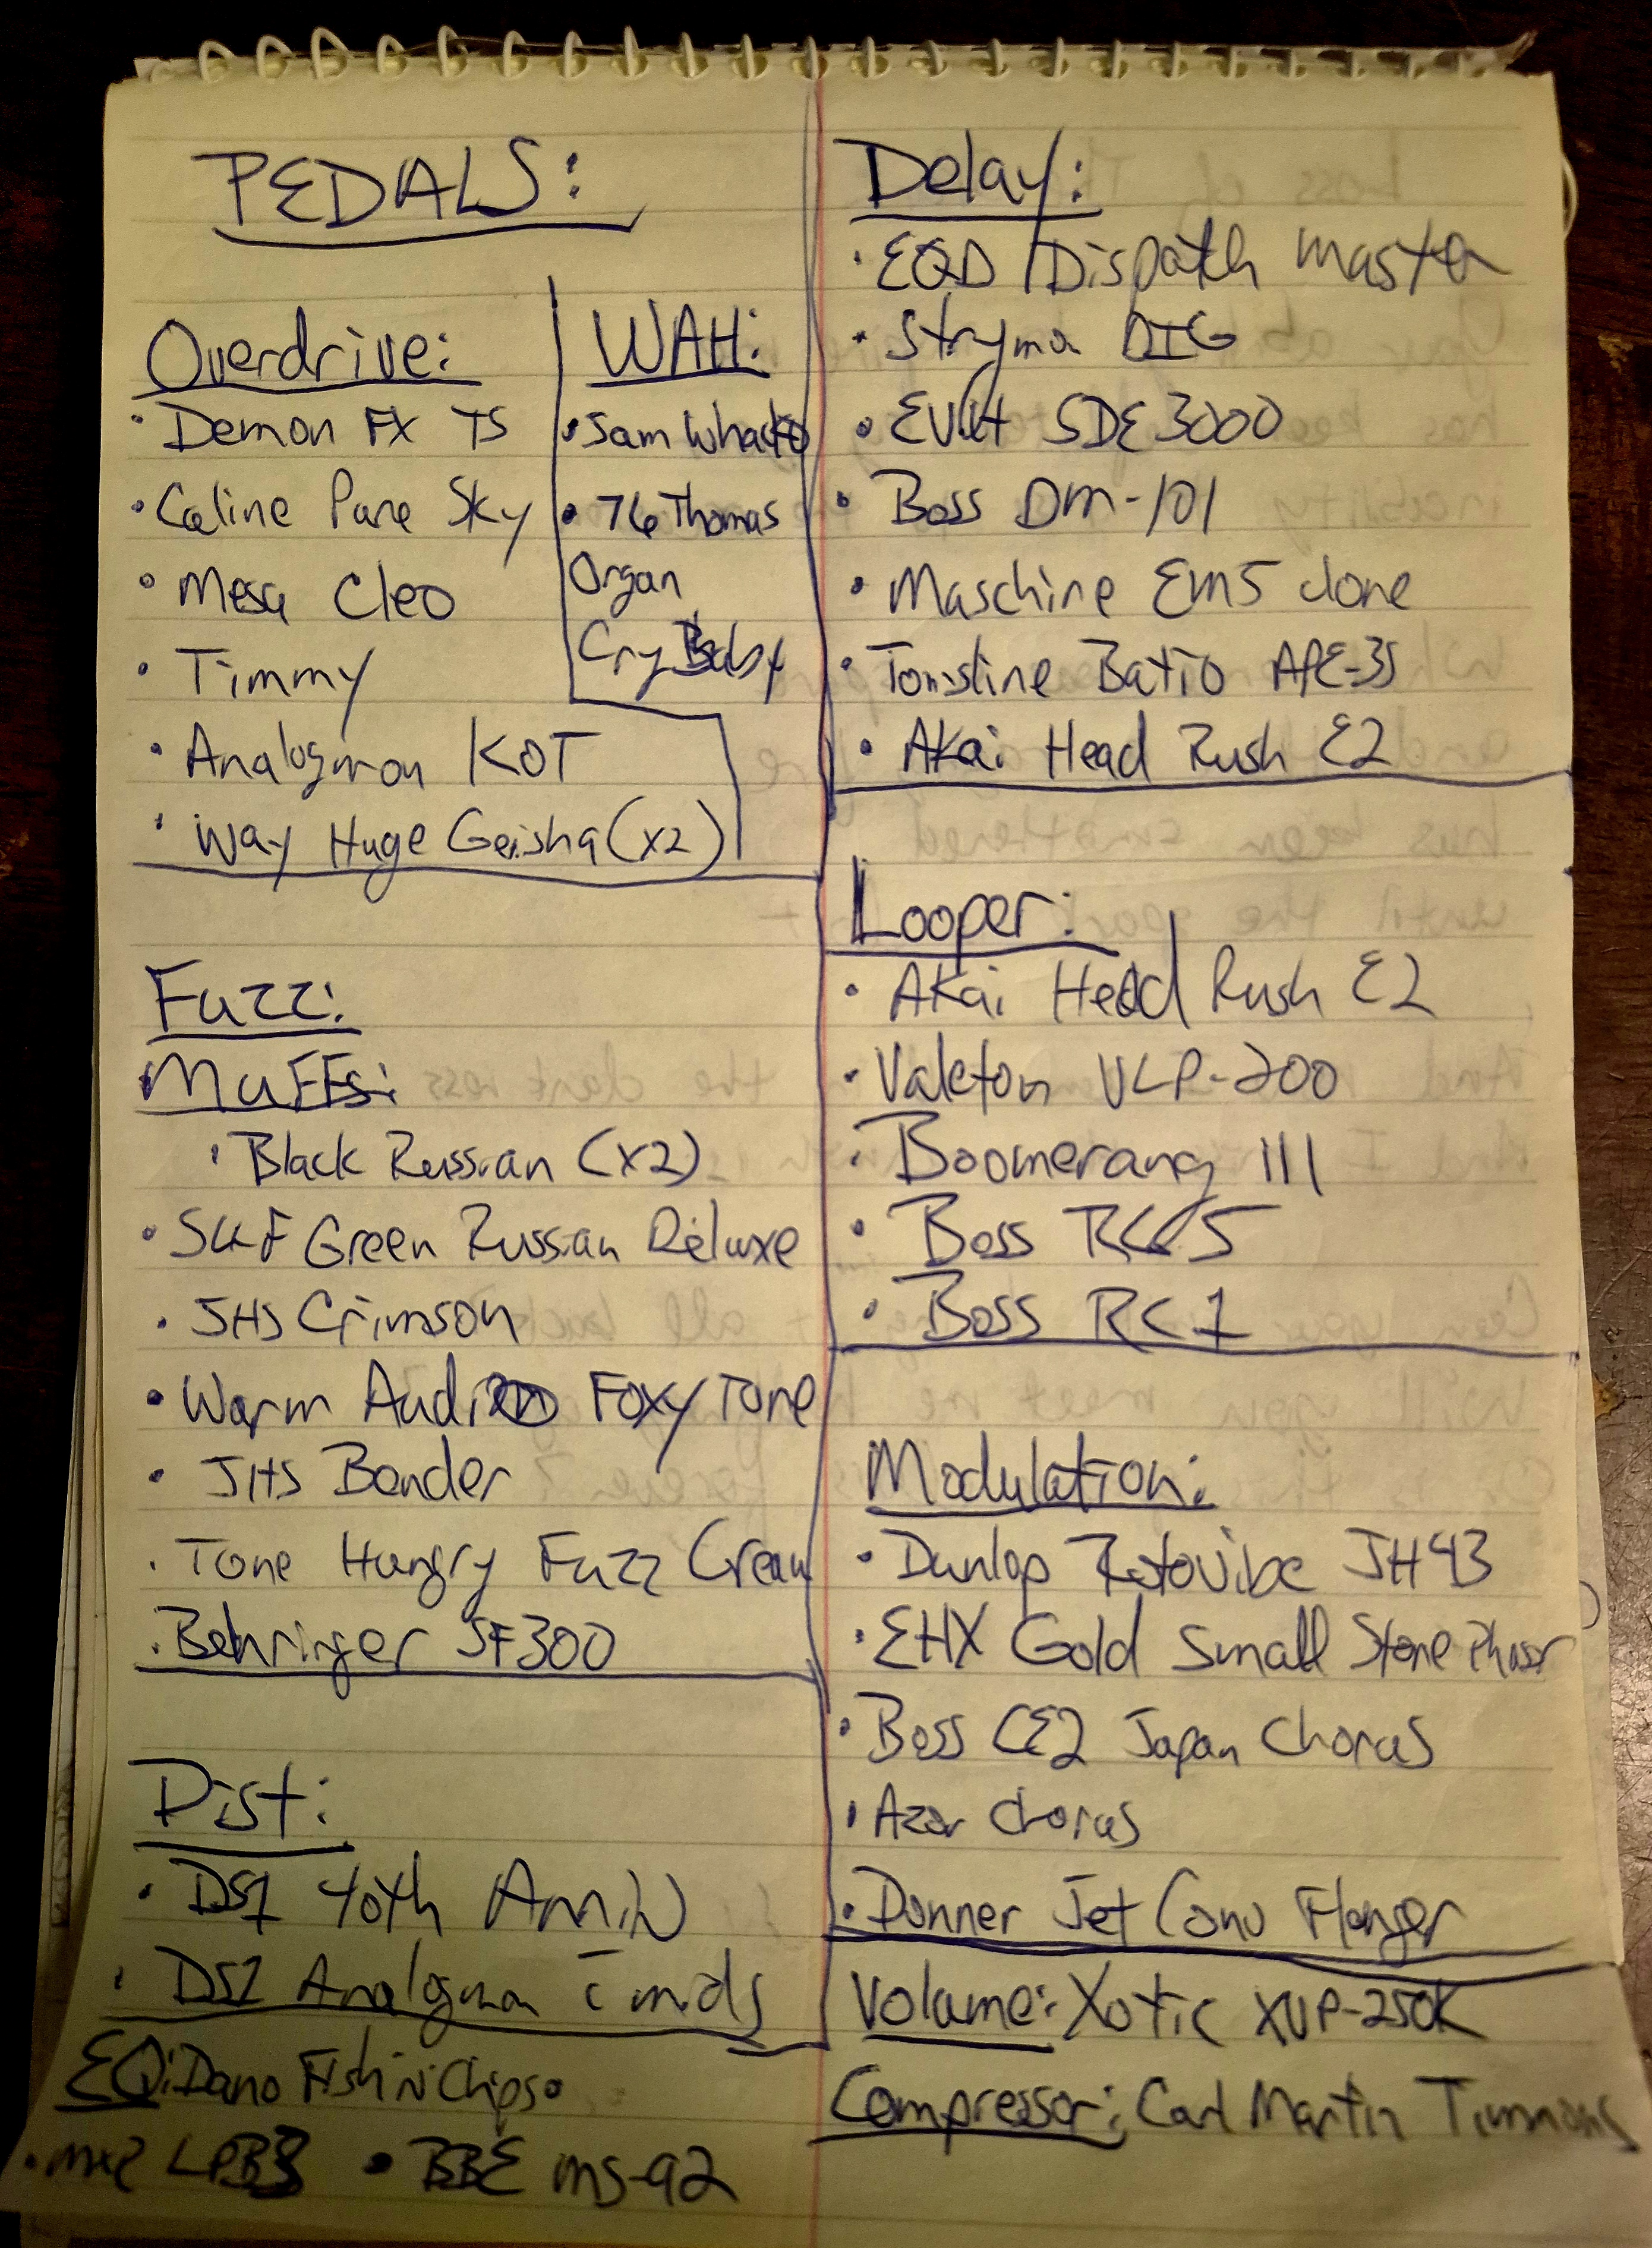 PEDALS:
Overdrive:
• Demon FX TS
• Caline Pure Sky
• Mesa Cleo
• Timmy
• Analogman KOT
• Way Huge Geisha (x2)
WAH:
• Jam Whacko
• 76 Thomas
Organ
Cry Baby
Fuzz:
Muffs:
• Black Russian (x2)
• SKF Green Russian Deluxe
• JHS Crimson
• Warm Audio Foxy Tone
• JHS Bender
• Tone Hungry Fuzz Cream
• Behringer SF300
Dist:
• DS1 40th Anniv
• DS1 Analogman mids
EQ: Dano Fish N Chips •
• mxr LPB3 • BBE MS-92
Delay:
• EQD Dispatch Master
• Strymon DIG
• EVH SDE 3000
• Boss DM-101
• Maschine EM5 clone
• Batio APE-35
• Akai Head Rush E2
Looper:
• Akai Head Rush E2
• Valeton VLP-200
• Boomerang III
• Boss RC5
• Boss RC1
Modulation:
• Dunlop Rotovibe JH43
• EHX Gold Small Stone Phasr
• Boss CE2 Japan Chorus
• Azor Chorus
• Donner Jet Conv Flanger
Volume: Xotic XVP-250K
Compressor: Carl Martin Timmons